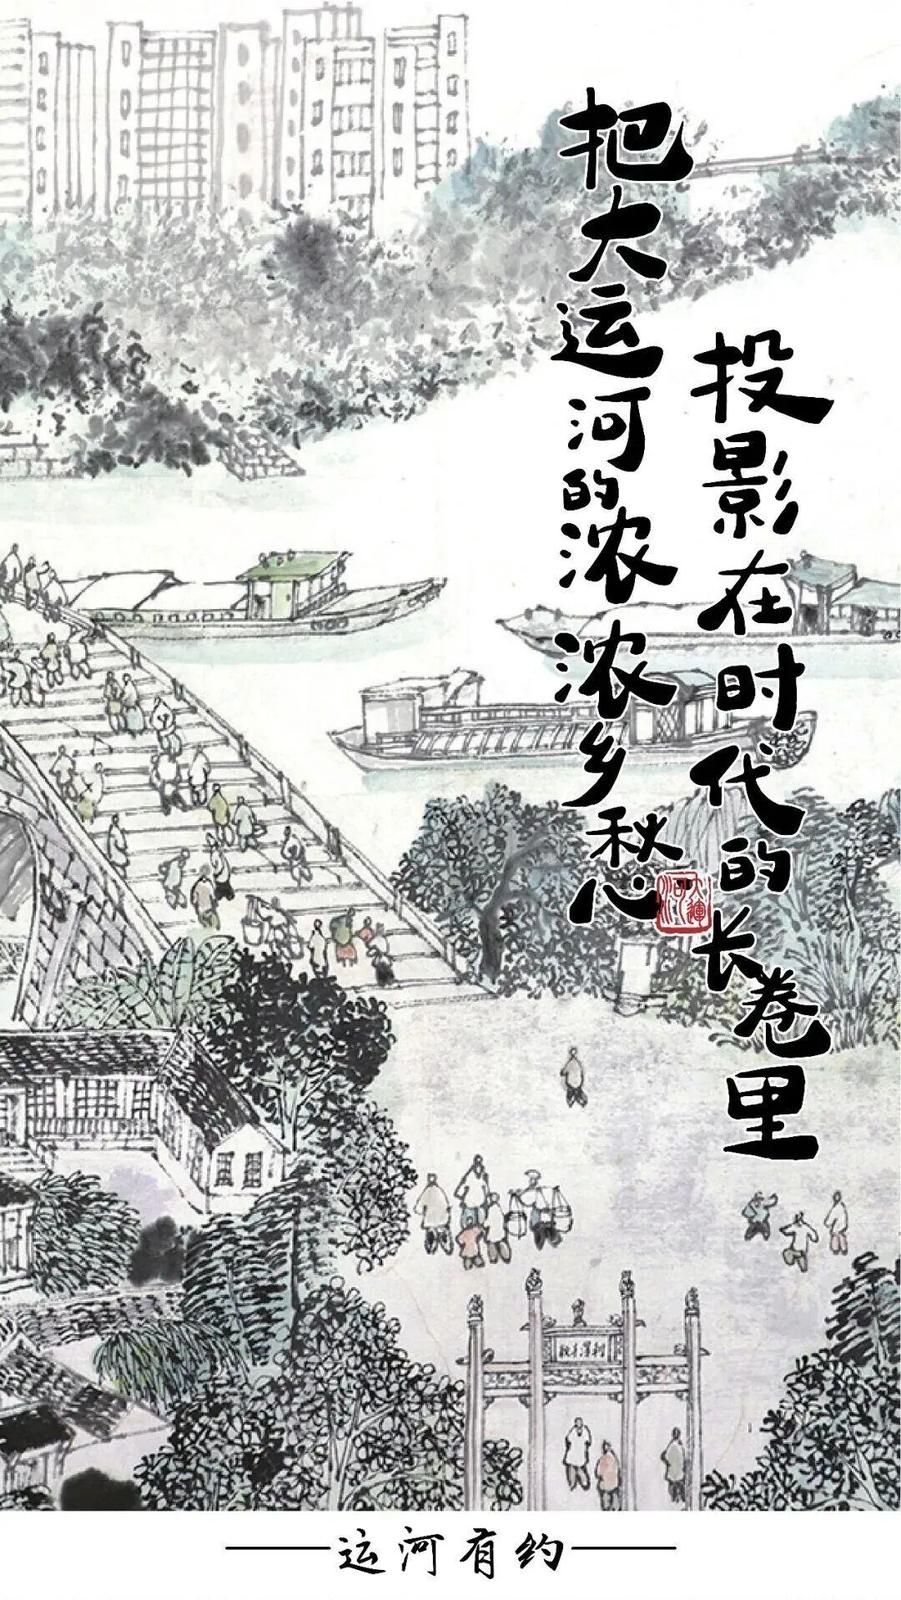 把大运河的浓浓乡愁
投影在时代的长卷里
大運河
运河有约